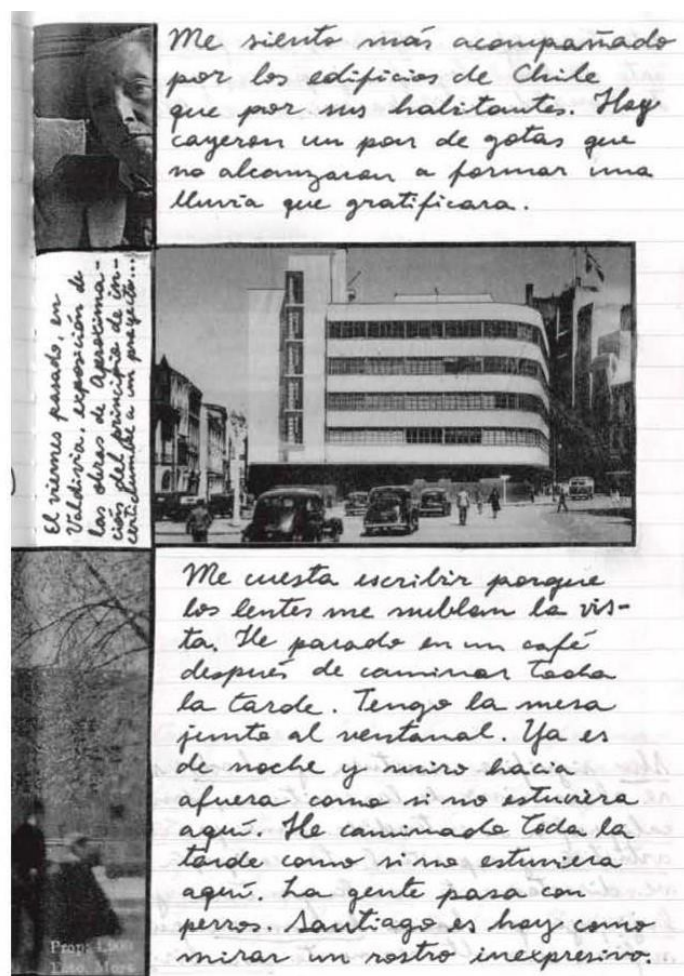 Me siento más acompañado
por los edificios de Chile
que por sus habitantes. Hoy
cayeron un par de gotas que
no alcanzaron a formar una
lluvia que gratificara.
El viernes pasado, en
Valdivia, exposición de
las obras de Aproxima-
ción del principio de in-
certidumbre a un proyecto...
Me cuesta escribir porque
los lentes me nublan la vis-
ta. He parado en un café
después de caminar toda
la tarde. Tengo la mesa
junto al ventanal. Ya es
de noche y miro hacia
afuera como si no estuviera
aquí. He caminado toda la
tarde como si no estuviera
aquí. La gente pasa con
perros. Santiago es hoy como
mirar un rostro inexpresivo.
Prop: 1.000
Foto. Mora